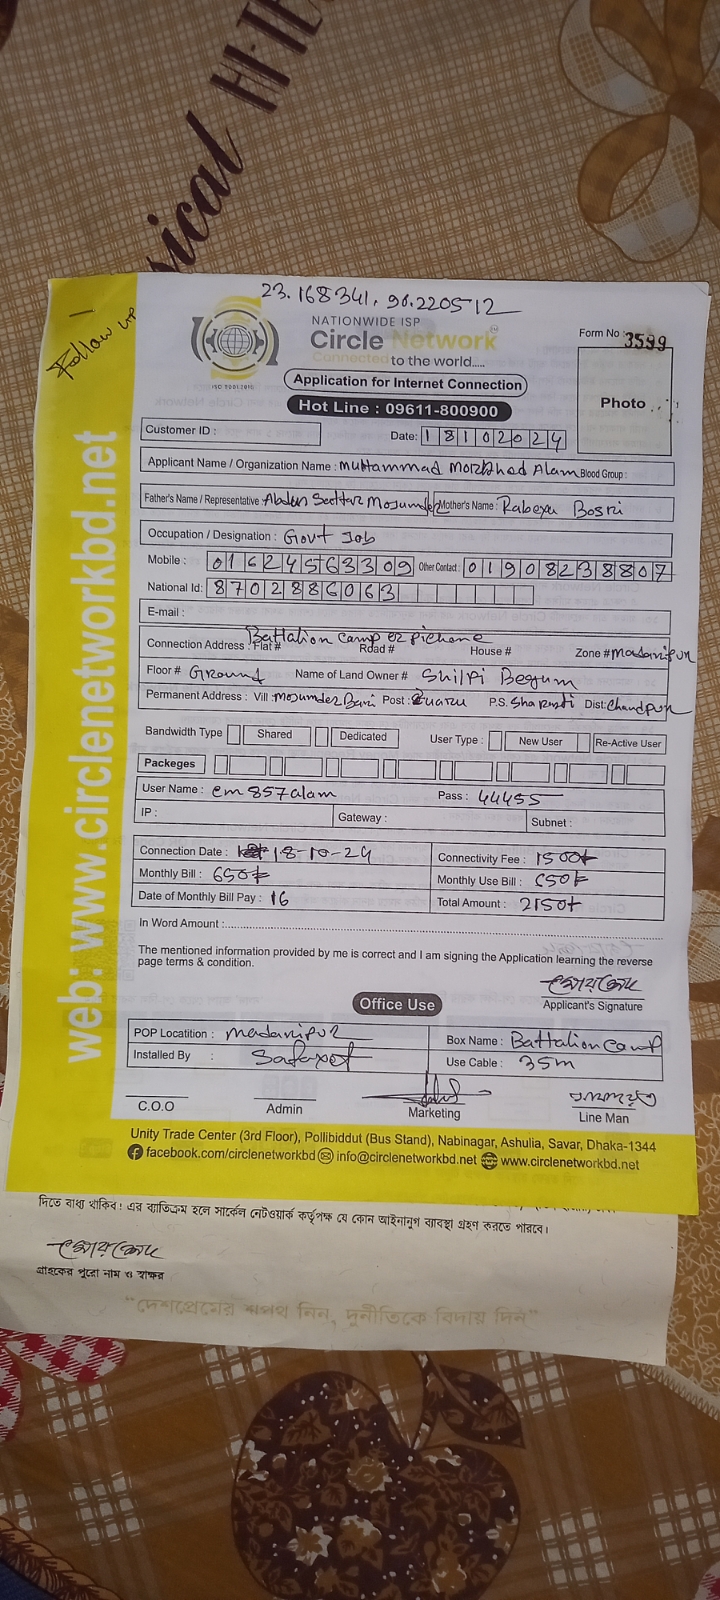 sical HI-TE
23.168341, 90.220512
Follow up
NATIONWIDE ISP
Circle Network
Connected to the world.....
ISO 9001:2015
Form No : 3599
Photo
Application for Internet Connection
Hot Line : 09611-800900
web: www.circlenetworkbd.net
Customer ID :
Date: 18102024
Applicant Name / Organization Name : Muhammad Morshed Alam Blood Group :
Father's Name / Representative : Abdus Sattar Mosumder Mother's Name : Rabeya Bosri
Occupation / Designation : Govt Job
Mobile : 01624563309 Other Contact : 01908238807
National Id: 8702886063
E-mail :
Battalion camp er pichone
Connection Address : Flat # Road # House # Zone # Madaripur
Floor # Ground Name of Land Owner # Shilpi Begum
Permanent Address : Vill Mosumder Bari Post : P.S. Sharasti Dist: Chandpur
Bandwidth Type Shared Dedicated User Type : New User Re-Active User
Packeges
User Name : cm857alam Pass : 44455
IP : Gateway : Subnet :
Connection Date : 18-10-24 Connectivity Fee : 1500/-
Monthly Bill : 650/- Monthly Use Bill : 650/-
Date of Monthly Bill Pay : 16 Total Amount : 2150/-
In Word Amount :
The mentioned information provided by me is correct and I am signing the Application learning the reverse
page terms & condition.
মোরশেদ
Applicant's Signature
Office Use
POP Locatition : Madaripur Box Name : Battalion Camp
Installed By : Use Cable : 35m
C.O.O Admin Marketing Line Man
Unity Trade Center (3rd Floor), Pollibiddut (Bus Stand), Nabinagar, Ashulia, Savar, Dhaka-1344
facebook.com/circlenetworkbd info@circlenetworkbd.net www.circlenetworkbd.net
দিতে বাধ্য থাকিব। এর ব্যতিক্রম হলে সার্কেল নেটওয়ার্ক কর্তৃপক্ষ যে কোন আইনানুগ ব্যবস্থা গ্রহণ করতে পারবে।
মোরশেদ
গ্রাহকের পুরো নাম ও স্বাক্ষর
"দেশপ্রেমের শপথ নিন, দুর্নীতিকে বিদায় দিন"